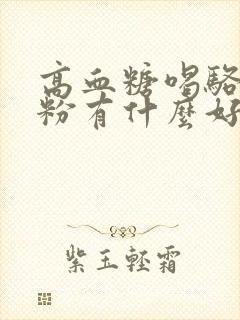 高血糖喝駱
粉有什麼好
紫玉輕霜